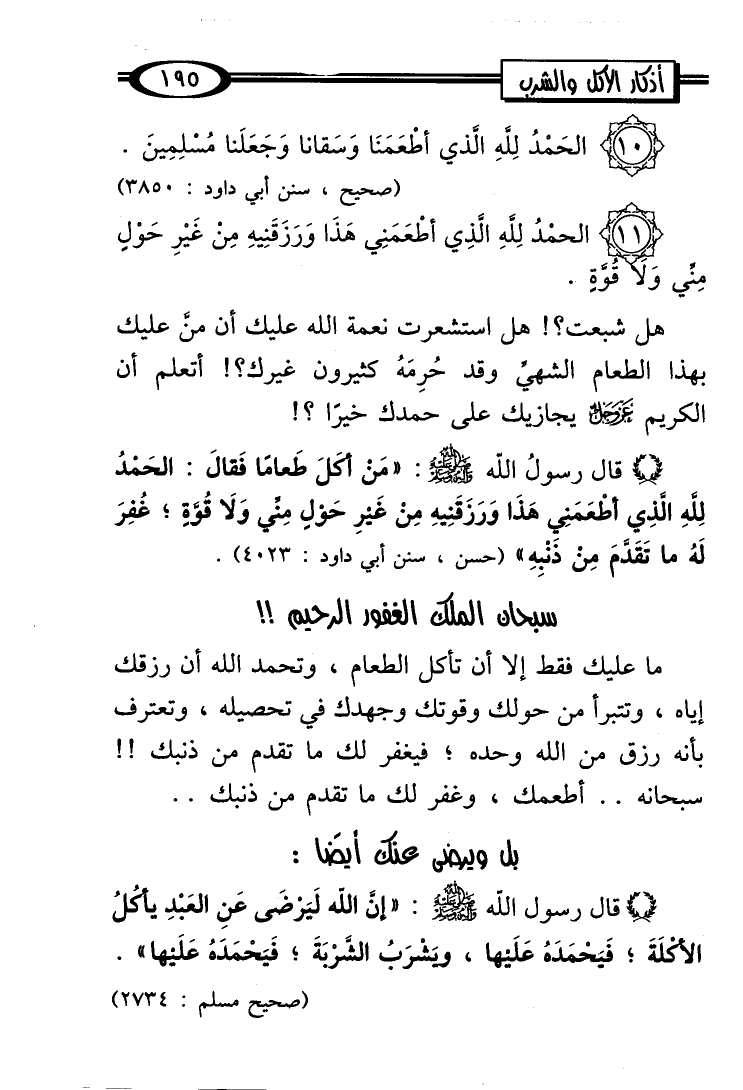 أذكار الأكل والشرب
١٩٥
١٠ الحَمْدُ لِلَّهِ الَّذي أطْعَمَنَا وَسَقانا وَجَعَلَنا مُسْلِمِينَ .
(صحيح ، سنن أبي داود : ٣٨٥٠)
١١ الحمْدُ لِلَّهِ الَّذِي أطْعَمَنِي هَذَا وَرَزَقَنِيهِ مِنْ غَيْرِ حَوْلٍ
مِنِّي وَلَا قُوَّةٍ .
هل شبعت؟! هل استشعرت نعمة الله عليك أن منَّ عليك
بهذا الطعام الشهيِّ وقد حُرِمَهُ كثيرون غيرك؟! أتعلم أن
الكريم عَزَّوَجَلَّ يجازيك على حمدك خيرًا ؟!
قال رسولُ اللَّه ﷺ : «مَنْ أكَلَ طَعامًا فَقالَ : الحَمْدُ
لِلَّهِ الَّذِي أطْعَمَنِي هَذَا وَرَزَقَنِيهِ مِنْ غَيْرِ حَوْلٍ مِنِّي وَلَا قُوَّةٍ ؛ غُفِرَ
لَهُ ما تَقَدَّمَ مِنْ ذَنْبِهِ» (حسن ، سنن أبي داود : ٤٠٢٣) .
سبحان الملك الغفور الرحيم !!
ما عليك فقط إلا أن تأكل الطعام ، وتحمد الله أن رزقك
إياه ، وتتبرأ من حولك وقوتك وجهدك في تحصيله ، وتعترف
بأنه رزق من الله وحده ؛ فيغفر لك ما تقدم من ذنبك !!
سبحانه .. أطعمك ، وغفر لك ما تقدم من ذنبك ..
بل ويرضى عنك أيضًا :
قال رسول اللَّه ﷺ : «إنَّ اللَّه لَيَرْضَى عَنِ العَبْدِ يأكُلُ
الأكْلَةَ ؛ فَيَحْمَدَهُ عَلَيْها ، ويَشْرَبُ الشَّرْبَةَ ؛ فَيَحْمَدَهُ عَلَيْها» .
(صحيح مسلم : ٢٧٣٤)